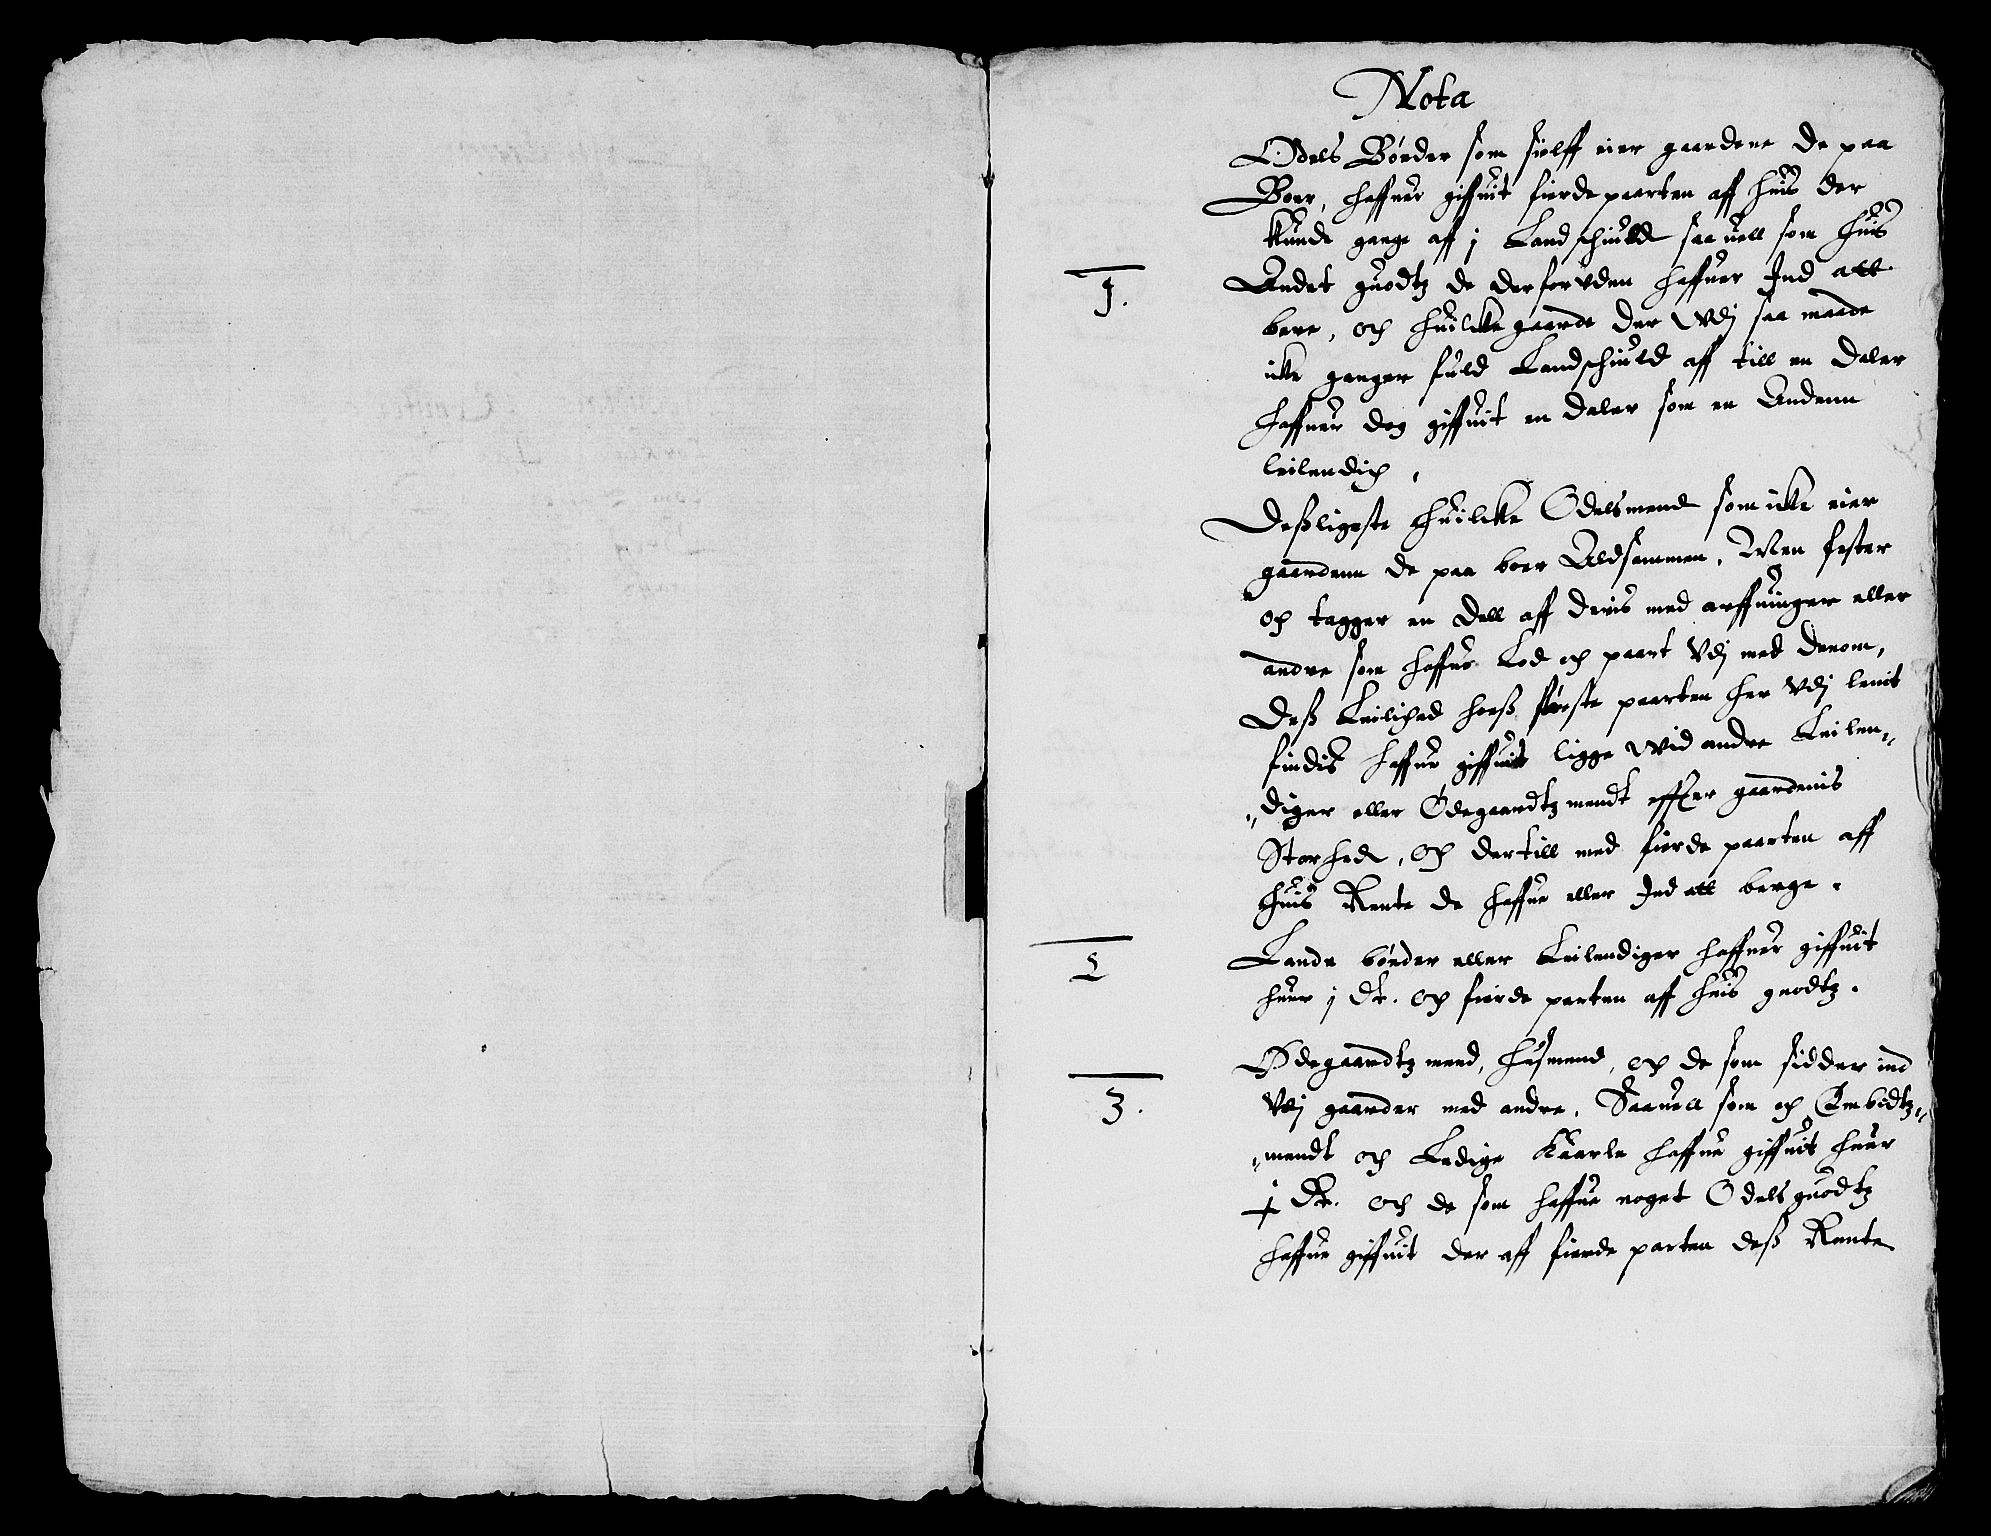 Nota
Odels Bønder som sielff eier gaardene de paa
Boer, haffuer giffuit fierde paarten aff huis der
kunde gange aff j Landschuld saa uell som huis
1.
Andet guodtz de derforvden haffuer Ind att
bere, och huilcke gaarde der Vdj saa maade
icke ganger fuld Landschuld aff till en daler
haffuer dog giffuit en daler som en Andenn
leilendich,
Desligeste huilcke Odelsmend som icke eier
gaardenn de paa boer Aldsammen, Men fester
och tagger en dell aff deris med arffuinger eller
andre som haffue Lod och paart Vdj med denom,
Deß Leilighed hoeß første paarten her Vdj lenit
findis haffue giffuit ligge wid andre Leilen„
„diger eller Ødegaardtz mendt effter gaardenis
Storhed, och dertill med fierde paarten aff
huis Rente de haffue eller Ind att berge.
2
Lande bønder eller Leilendiger haffuer giffuit
huer j Dr. och fierde parten aff huis guodtz.
3.
Ødegaardtz mend, husmend, och de som sidder ind
Vdj gaarder med andre, Saauell som och Embidtz„
„mendt och Ledige Kaarle haffue giffuit huer
½ Dr. och de som haffue noget Odels guodtz
haffue giffuit der aff fierde parten deß Rente